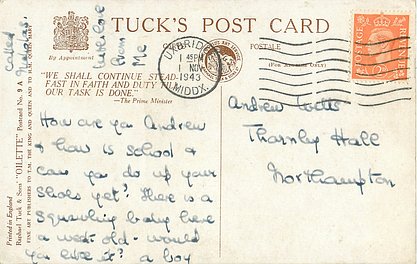 TUCK'S POST CARD
By Appointment
POSTALE
(For Address Only)
"WE SHALL CONTINUE STEAD-
FAST IN FAITH AND DUTY TILL
OUR TASK IS DONE."
—The Prime Minister
UXBRIDGE
1 45PM
1 NOV
1943
MIDDX.
Andrew
Thornby Hall
Northampton
How are you Andrew
& how is school &
can you do up your
shoes yet? There is a
squawling baby here
a week old - would
you like it? a boy
called
Nicholas.
love
from
Me
Printed in England
Raphael Tuck & Sons' "OILETTE" Postcard No. 9 A
FINE ART PUBLISHERS TO T.M. THE KING AND QUEEN AND TO H.M. QUEEN MARY